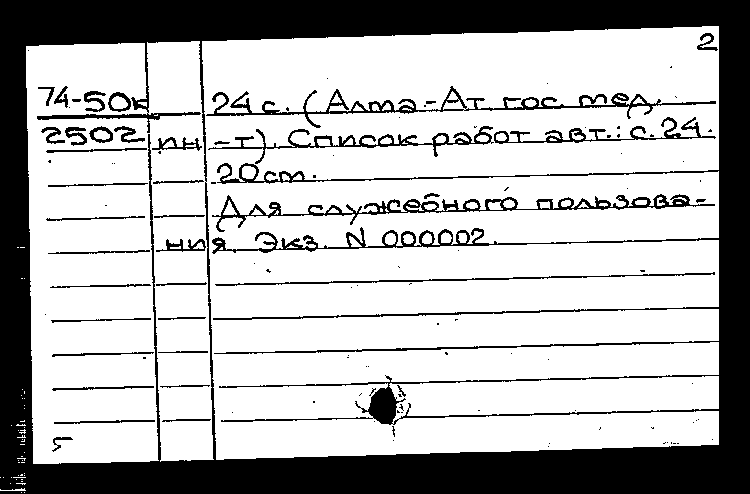 2
74-50к 24 с. (Алма-Ат гос мед.
2502 ин-т). Список работ авт.: с. 24.
20 ст.
Для служебного пользова-
ния. Экз. N 000002.